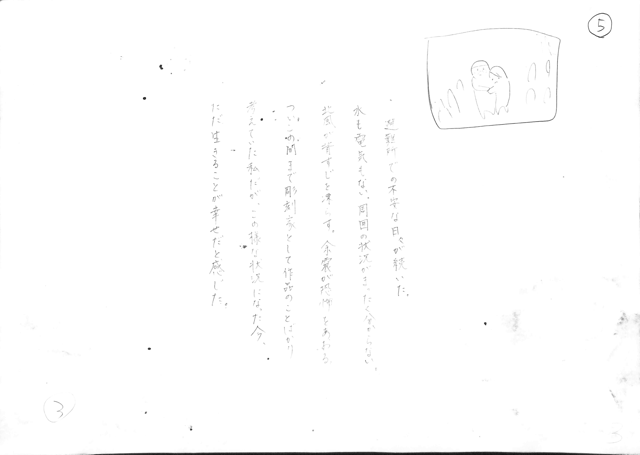 ⑤
避難所での不安な日々が続いた。
水も電気もない。周囲の状況がまったく分からない。
北風が背すじを凍らす。余震が恐怖をあおる。
ついこの間まで彫刻家として作品のことばかり
考えていた私だが、この様な状況になった今、
ただ生きることが幸せだと感じた。
③